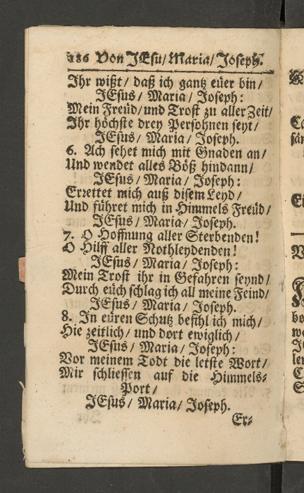 186 Von JEsu/ Maria/ Joseph.
Ihr wißt/ daß ich gantz eüer bin/
JEsus/ Maria/ Joseph:
Mein Freüd/ und Trost zu aller Zeit/
Ihr höchste drey Persohnen seyt/
JEsus/ Maria/ Joseph.
6. Ach sehet mich mit Gnaden an/
Und wendet alles Böß hindann/
JEsus/ Maria/ Joseph:
Errettet mich auß disem Leyd/
Und führet mich in Himmels Freüd/
JEsus/ Maria/ Joseph.
7. O Hoffnung aller Sterbenden!
O Hilff aller Nothleydenden!
JEsus/ Maria/ Joseph:
Mein Trost ihr in Gefahren seynd/
Durch eüch schlag ich all meine Feind/
JEsus/ Maria/ Joseph.
8. In eüren Schutz befihl ich mich/
Hie zeitlich/ und dort ewiglich/
JEsus/ Maria/ Joseph:
Vor meinem Todt die letste Wort/
Mir schliessen auf die Himmels-
Port/
JEsus/ Maria/ Joseph.
Er-